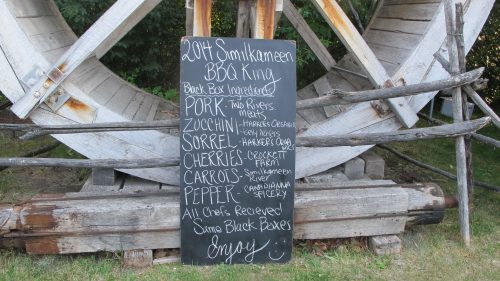 2014 Similkameen
BBQ King
Black Box Ingredients
PORK - Two Rivers
meats
ZUCCHINI - Harkers Organics
SORREL - Harkers Org.
CHERRIES - Crockett
Farm
CARROTS - Similkameen
River
PEPPER - Canadianna
Spicery
All Chefs Recieved
Same Black Boxes
Enjoy